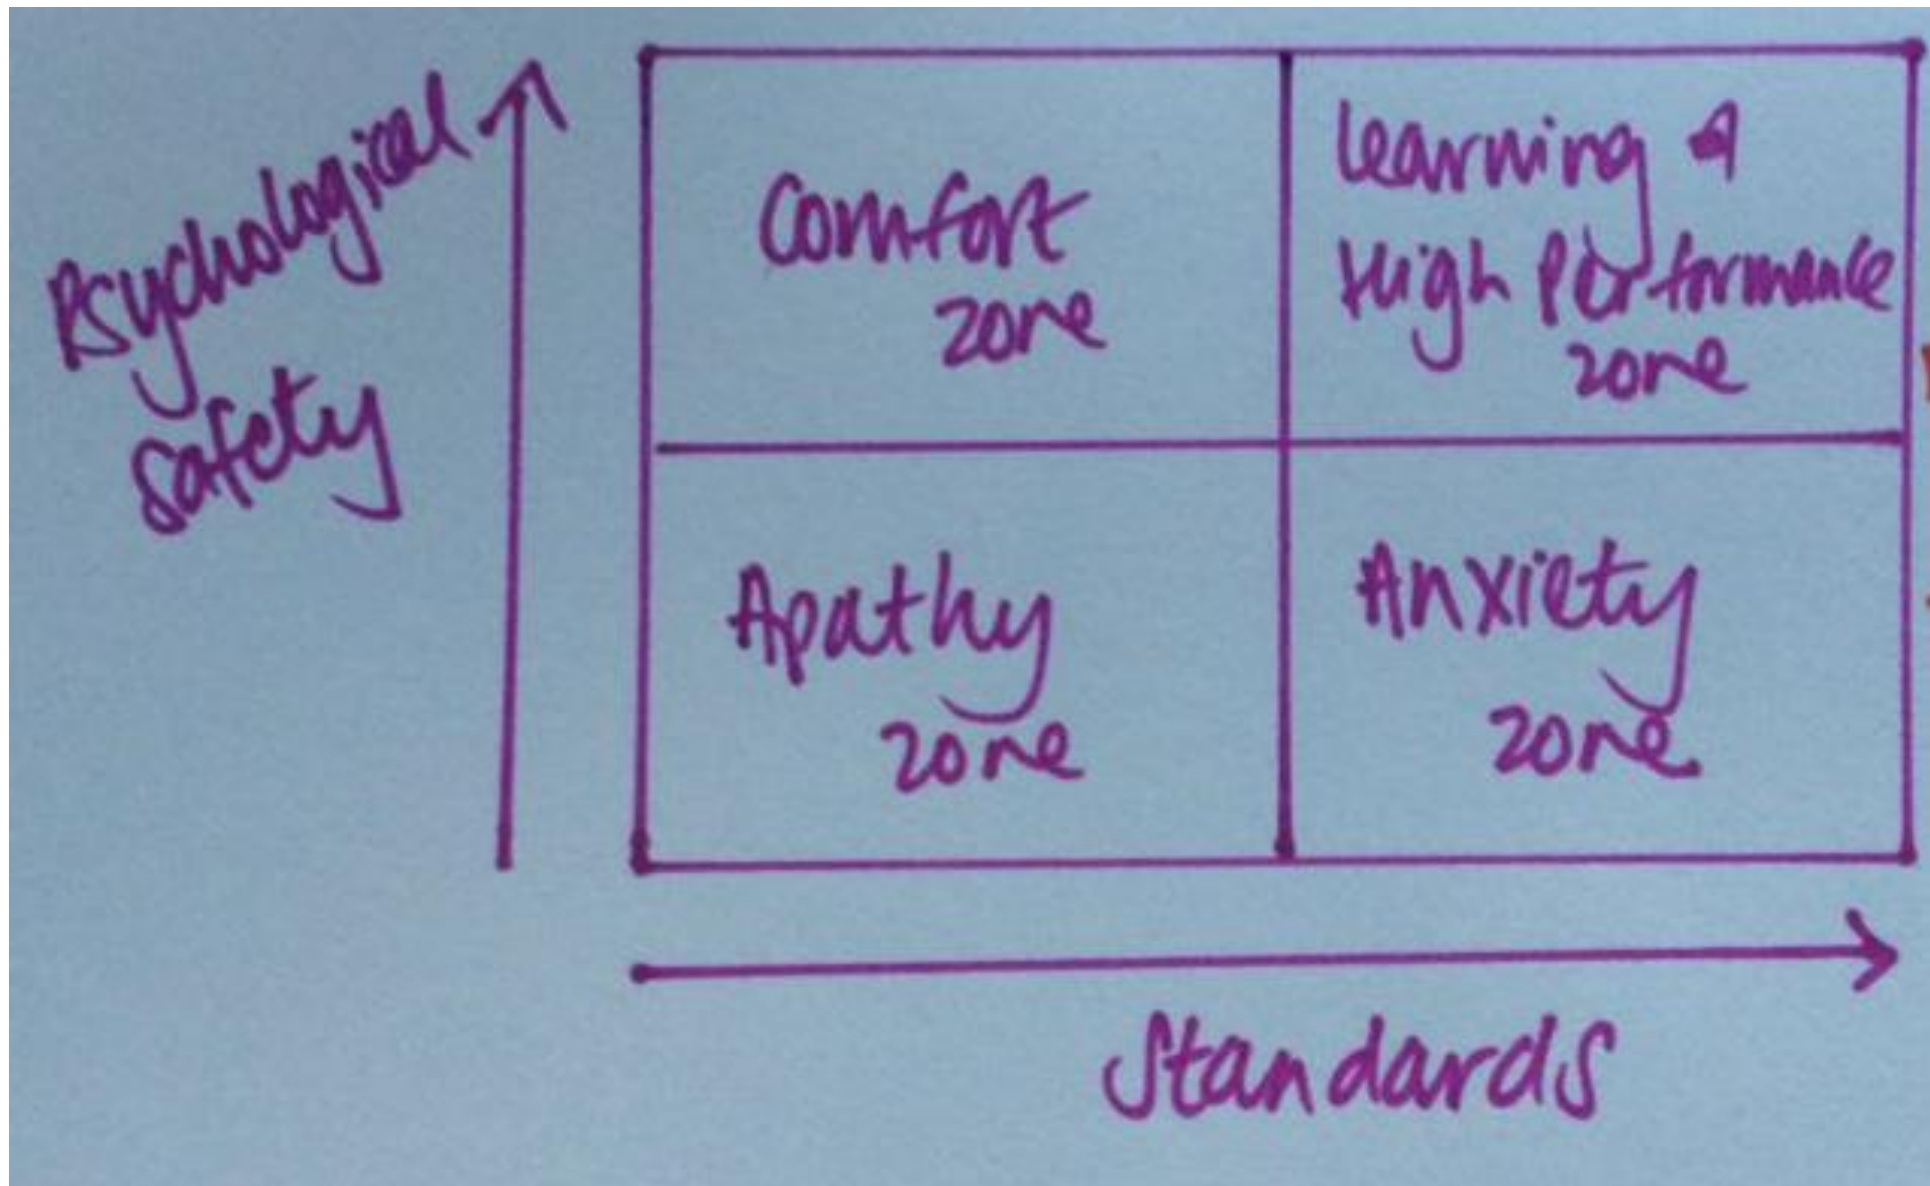 Psychological
Safety
Comfort
zone
Learning &
High Performance
zone
Apathy
zone
Anxiety
zone
Standards